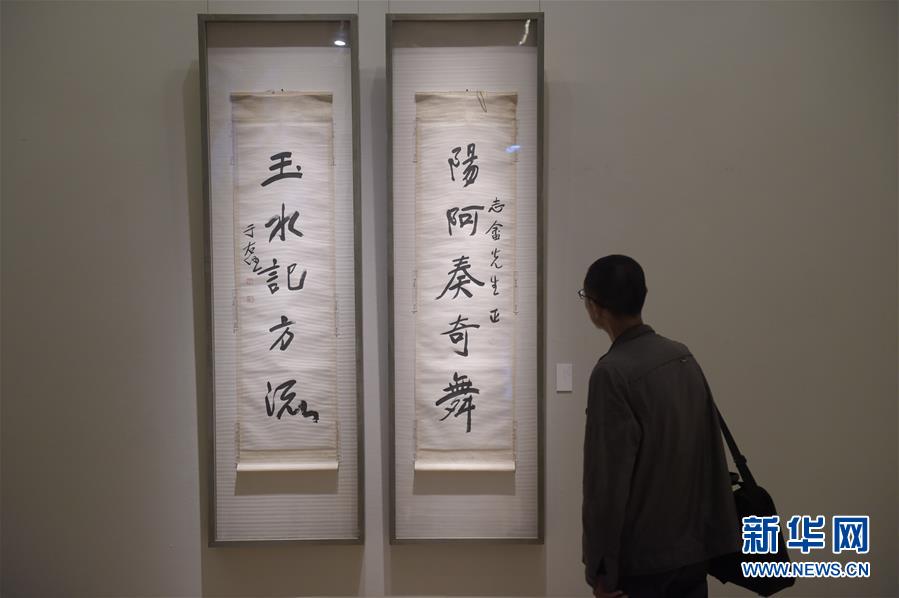 陽阿奏奇舞
志畬先生正
玉水記方流
于右任
新华网
WWW.NEWS.CN